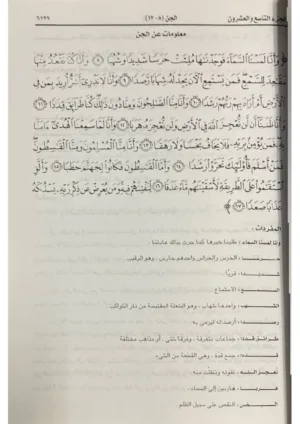 الجزء التاسع والعشرون الجن (٨-١٧)
معلومات عن الجن
وَأَنَّا لَمَسْنَا السَّمَاءَ فَوَجَدْنَاهَا مُلِئَتْ حَرَسًا شَدِيدًا وَشُهُبًا ۝٨ وَأَنَّا كُنَّا نَقْعُدُ مِنْهَا
مَقَاعِدَ لِلسَّمْعِ فَمَنْ يَسْتَمِعِ الْآنَ يَجِدْ لَهُ شِهَابًا رَصَدًا ۝٩ وَأَنَّا لَا نَدْرِي أَشَرٌّ أُرِيدَ بِمَنْ فِي
الْأَرْضِ أَمْ أَرَادَ بِهِمْ رَبُّهُمْ رَشَدًا ۝١٠ وَأَنَّا مِنَّا الصَّالِحُونَ وَمِنَّا دُونَ ذَلِكَ كُنَّا طَرَائِقَ قِدَدًا ۝١١
وَأَنَّا ظَنَنَّا أَنْ لَنْ نُعْجِزَ اللَّهَ فِي الْأَرْضِ وَلَنْ نُعْجِزَهُ هَرَبًا ۝١٢ وَأَنَّا لَمَّا سَمِعْنَا الْهُدَى آمَنَّا
بِهِ فَمَنْ يُؤْمِنْ بِرَبِّهِ فَلَا يَخَافُ بَخْسًا وَلَا رَهَقًا ۝١٣ وَأَنَّا مِنَّا الْمُسْلِمُونَ وَمِنَّا الْقَاسِطُونَ
فَمَنْ أَسْلَمَ فَأُولَئِكَ تَحَرَّوْا رَشَدًا ۝١٤ وَأَمَّا الْقَاسِطُونَ فَكَانُوا لِجَهَنَّمَ حَطَبًا ۝١٥ وَأَلَّوِ
اسْتَقَامُوا عَلَى الطَّرِيقَةِ لَأَسْقَيْنَاهُمْ مَاءً غَدَقًا ۝١٦ لِنَفْتِنَهُمْ فِيهِ وَمَنْ يُعْرِضْ عَنْ ذِكْرِ رَبِّهِ يَسْلُكْهُ
عَذَابًا صَعَدًا ۝١٧
المفردات :
وأنا لمسنا السماء : طلبنا خبرها كما جرت بذلك عادتنا .
حرسا : الحرس والحراس واحدهم حارس ، وهو الرقيب .
شديدا : قويًّا .
السمع : الاستماع .
الشهب : واحدها شهاب ، وهو الشعلة المقتبسة من نار الكواكب
رصدا : أرصد له ليرمى به .
طرائق قددا : جماعات متفرقة ، وفرقا شتى ، أو مذاهب مختلفة
قددا : جمع قدة ، وهي القطعة من الشيء .
نعجز الله : نفوته ونتفلت منه .
هربا : هاربين إلى السماء .
البخس : النقص على سبيل الظلم